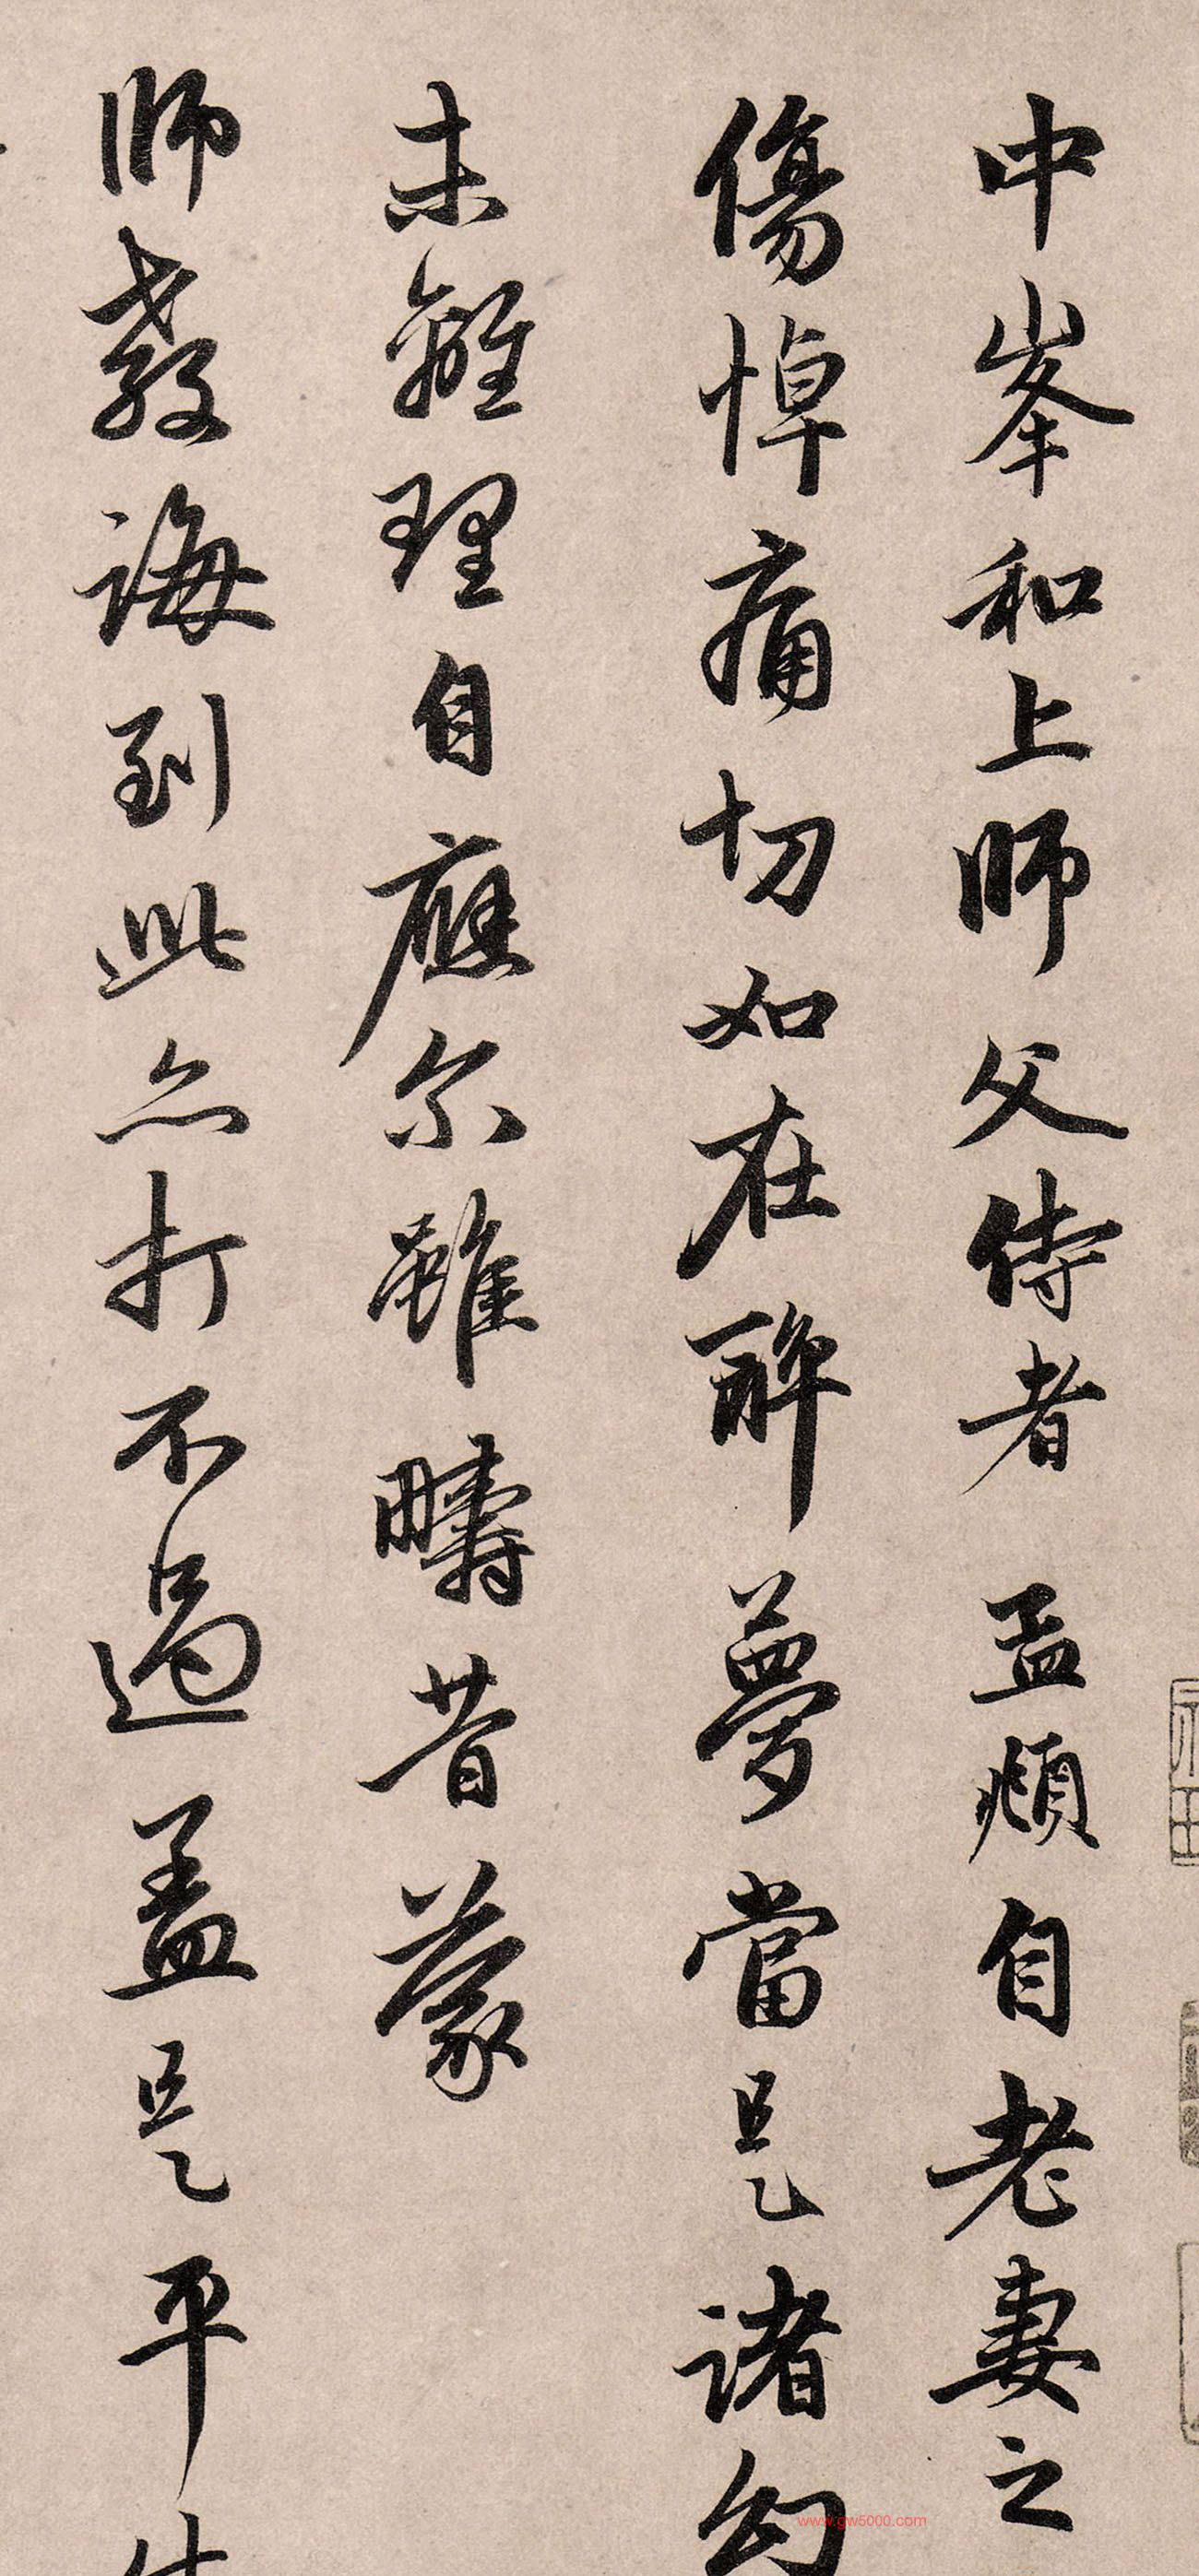 中峯和上師父侍者 孟頫自老妻之
傷悼痛切如在醉夢當是諸幻
未離理自應尔雖疇昔蒙
師教誨到此亦打不過盖是平生
www.gw5000.com